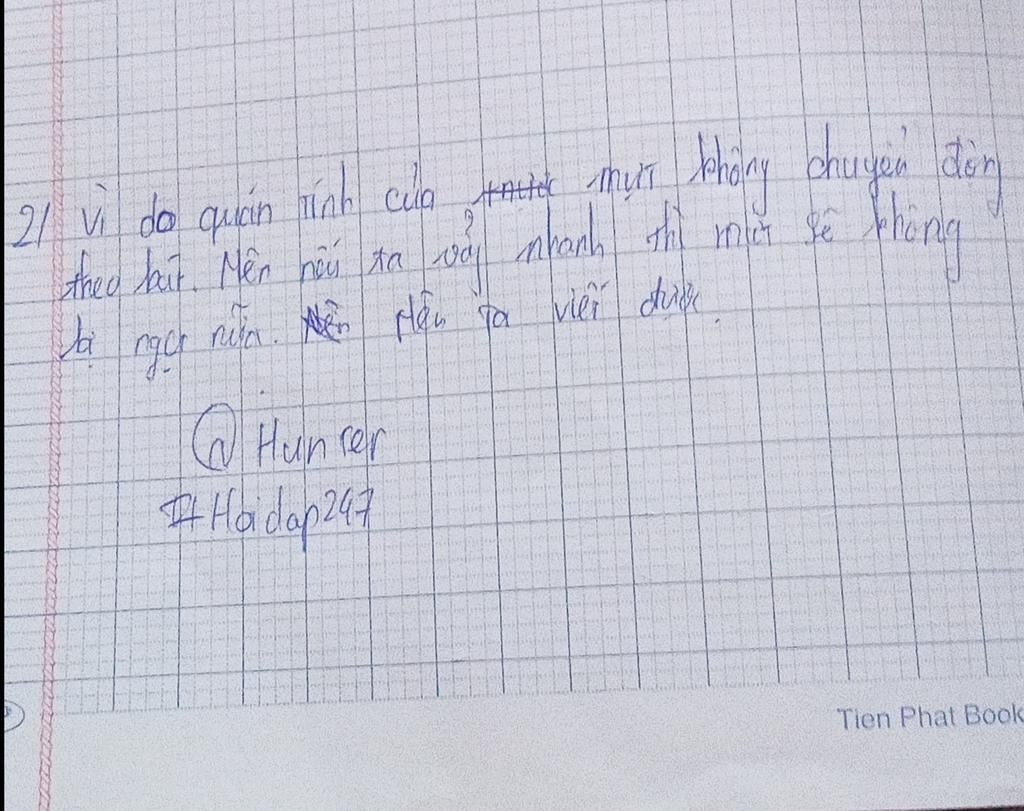 2/ Vì do quán tính của mực không chuyển động
theo bút. Nên nếu ta vẩy nhanh thì mực sẽ không
bị ngự nữa. Nên ta viết được.
@ Hunter
#Hoidap247
Tien Phat Book